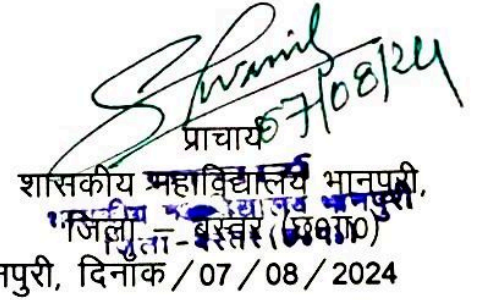 07/08/24
प्राचार्य
शासकीय महाविद्यालय भानपुरी,
जिला – बस्तर (छ0ग0)
नपुरी, दिनांक / 07 / 08 / 2024